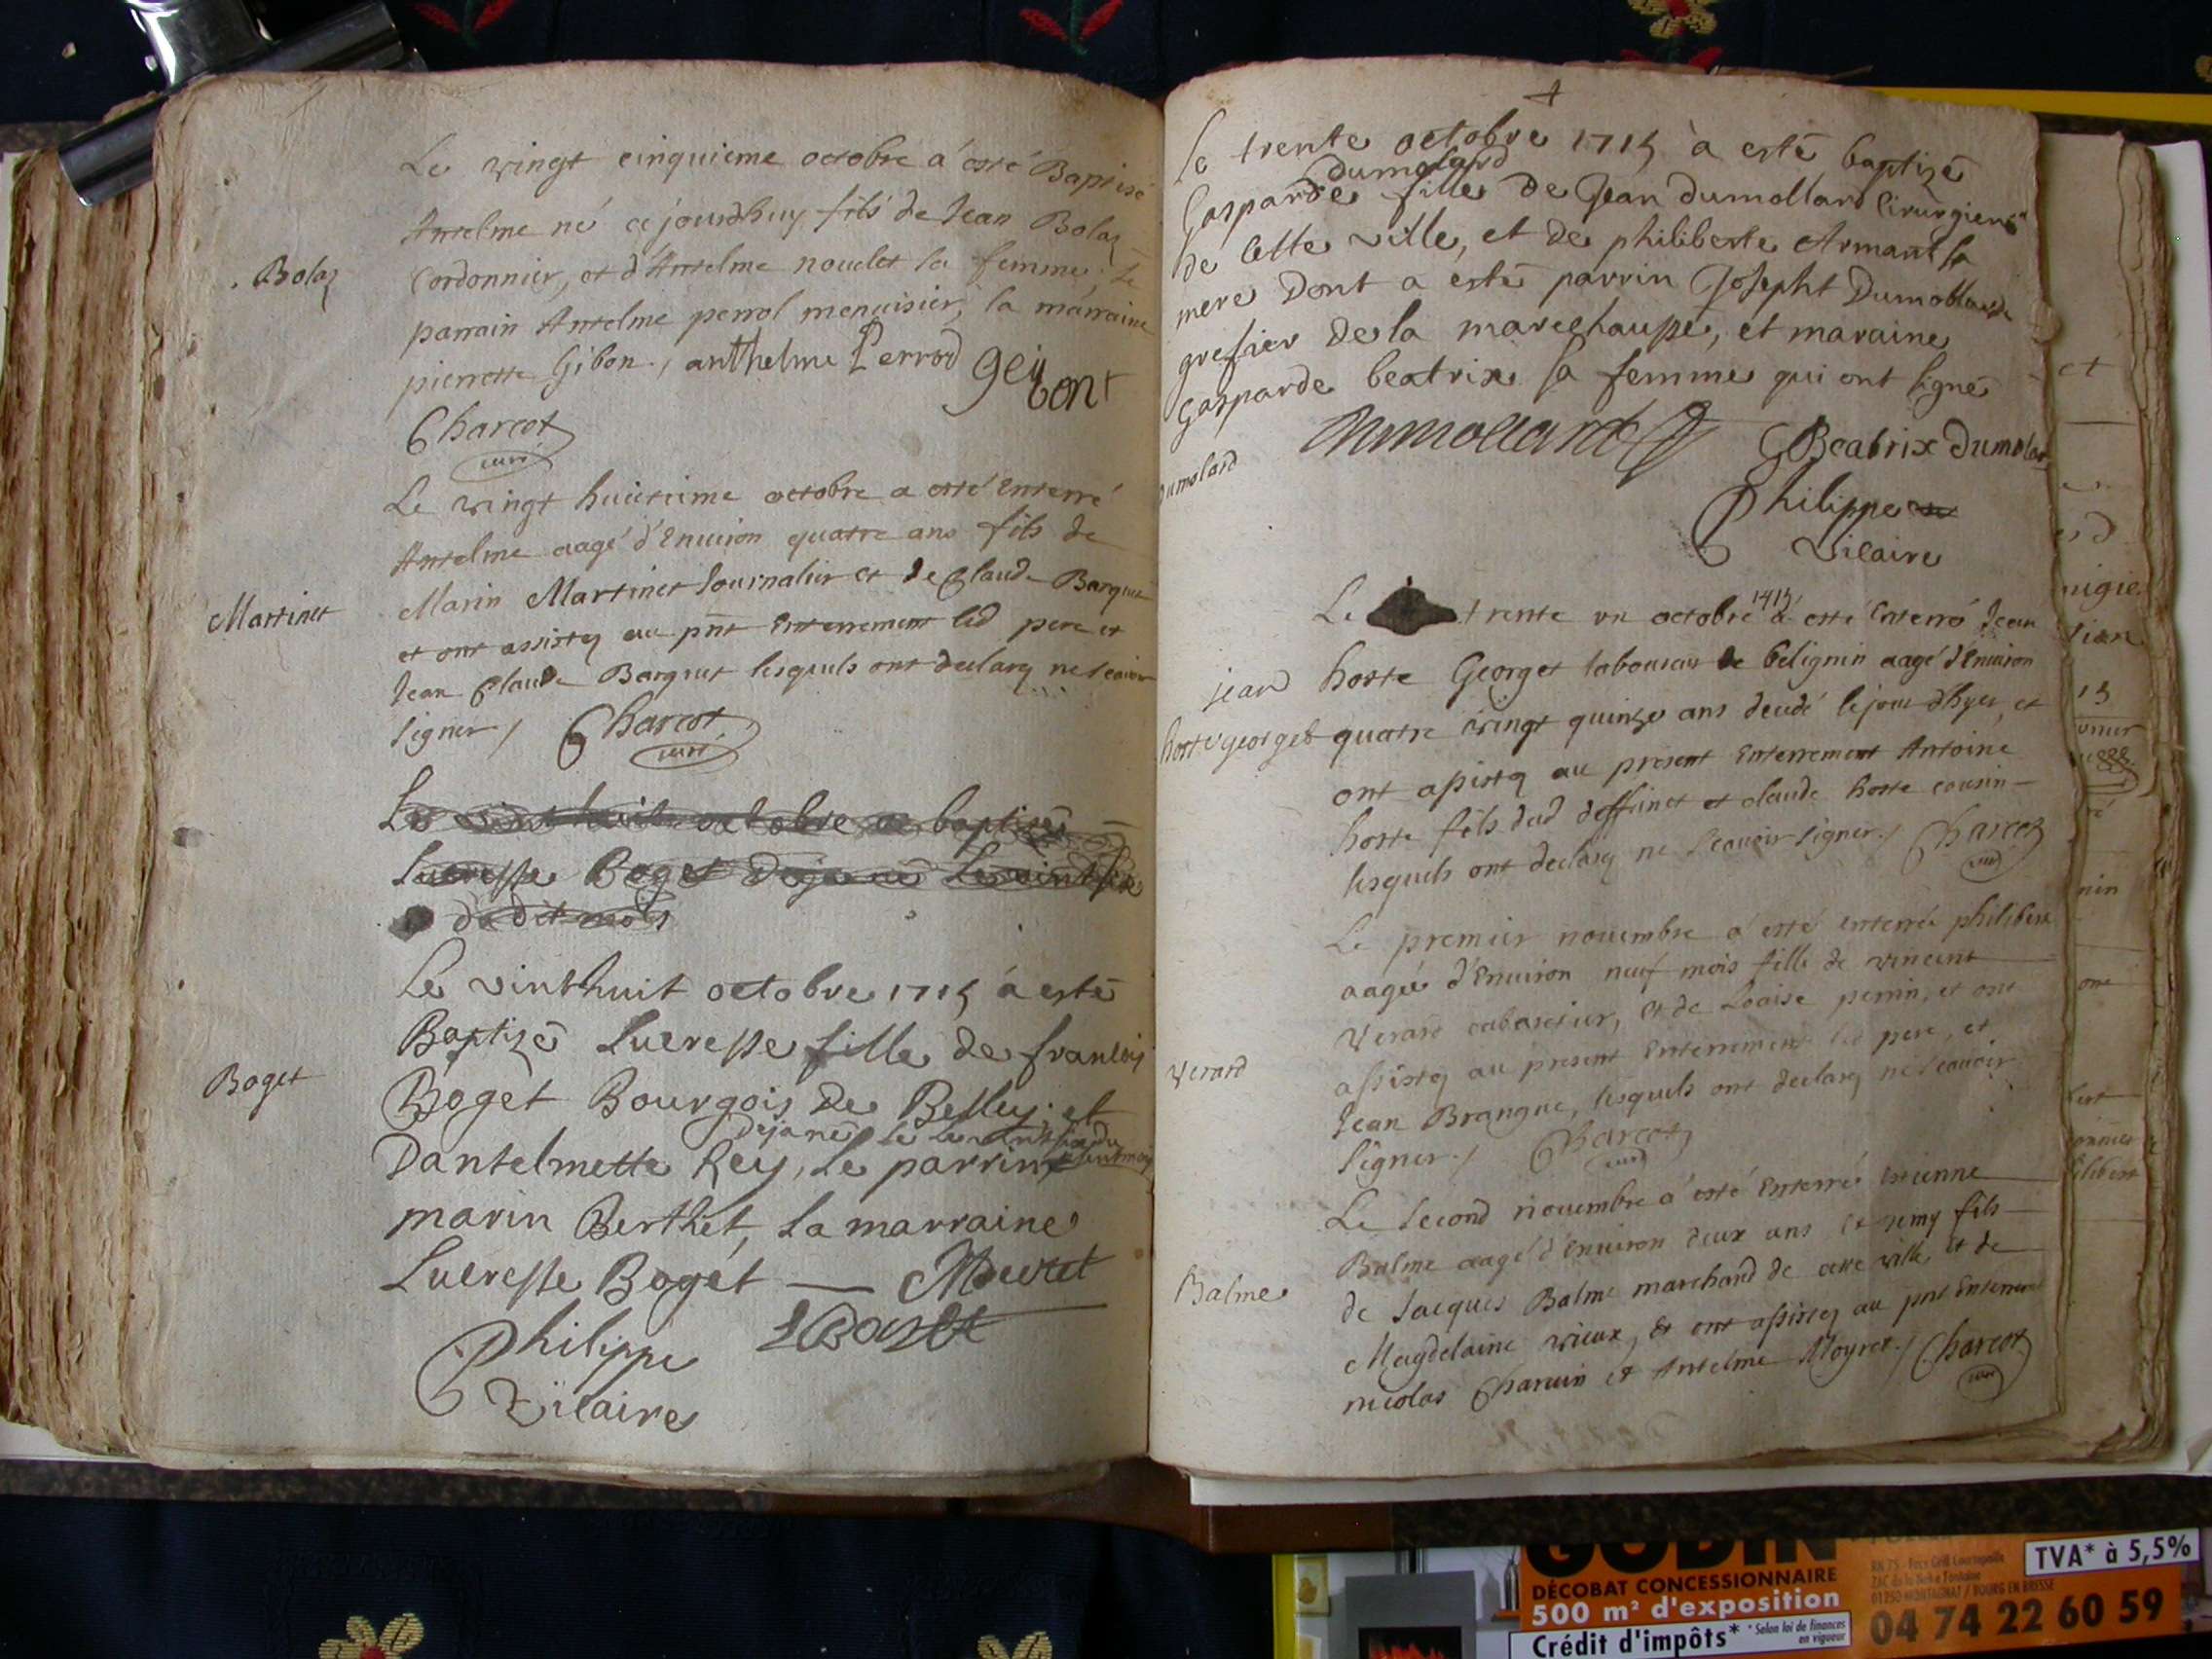 Le vingt cinquieme octobre a esté Baptisé
Antelme né ce jourdhuy fils de Jean Bolaz
Bolaz
Cordonnier, et d'Antelme noulet sa femme; Le
parrain Antelme perrol menuisier, la marraine
pierrette Gibon. / anthelme Perrod geibont
Charcot
curé
Le vingt huictieme octobre a esté Enterré
Antelme aagé d'Enuiron quatre ans fils de
Martinet
Marin Martinet Journalier et de Claude Barquet
et ont assistez au pnt Enterrement led pere et
Jean Claude Barquet lesquels ont declarez ne scauoir
signer / Charcot
curé
Le vint huit octobre a baptizé
Lucresse Boget deja né Le vint six
dudit mois
Le vinthuit octobre 1715 a esté
Baptizé Lucresse fille de francois
Boget
Boget Bourgois de Belley; et
deja né le le vint six du
Dantelmette Rey, Le parrin
marin Berthet, La marraine
Lucresse Boget —
L Boget
Philippe
Vicaire
Le trente octobre 1715 à esté baptizé
dumolard
Gasparde fille de Jean dumollard Cirurgiens
de Cette ville, et de philiberte Armant sa
mere Dont a esté parrin Josepht Dumollard
grefier de la marechausse, et maraine
Gasparde beatrix sa femme qui ont signé
Dumollard G Beatrix dumolar
Dumolard
Philippe
Vicaire
Le trente vn octobre 1715 a esté Enterré Jean
jean hoste Georget laboureur de Belignin aagé d'Enuiron
hoste georget quatre vingt quinze ans decedé le jour d'hyer, et
ont assistez au present Enterrement Antoine
hoste fils dud deffunct et claude hoste cousin
lesquels ont declarez ne scauoir signer. / Charcot
curé
Le premier nouembre a esté enterrée philiberte
aagée d'Enuiron neuf mois fille de vincent
Verard cabaretier, et de Louise perrin, et ont
Verard
assistez au present Enterrement led pere, et
Jean Brangue, lesquels ont declarez ne scauoir
signer. / Charcot
curé
Le second nouembre a esté Enterré Estienne
Balme aagé d'Enuiron deux ans et demy fils
Balme
de Jacques Balme marchand de cette ville, et de
Magdelaine vieux, Et ont assistez au pnt Enterrement
nicolas Charuin et Antelme Moyret. / Charcot
curé
GODIN
DÉCOBAT CONCESSIONNAIRE
500 m² d'exposition
Crédit d'impôts* * Selon loi de finances
en vigueur
TVA* à 5,5%
04 74 22 60 59